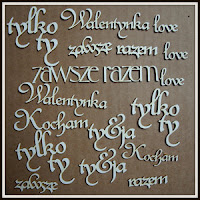 tylko Walentynka love
ty zawsze razem love
zawsze razem love
Walentynka tylko
Kocham ty
tylko ty&ja
ty ty&ja Kocham
zawsze razem